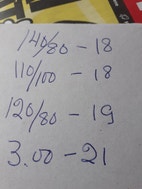 140/80 - 18
110/100 - 18
120/80 - 19
3.00 - 21